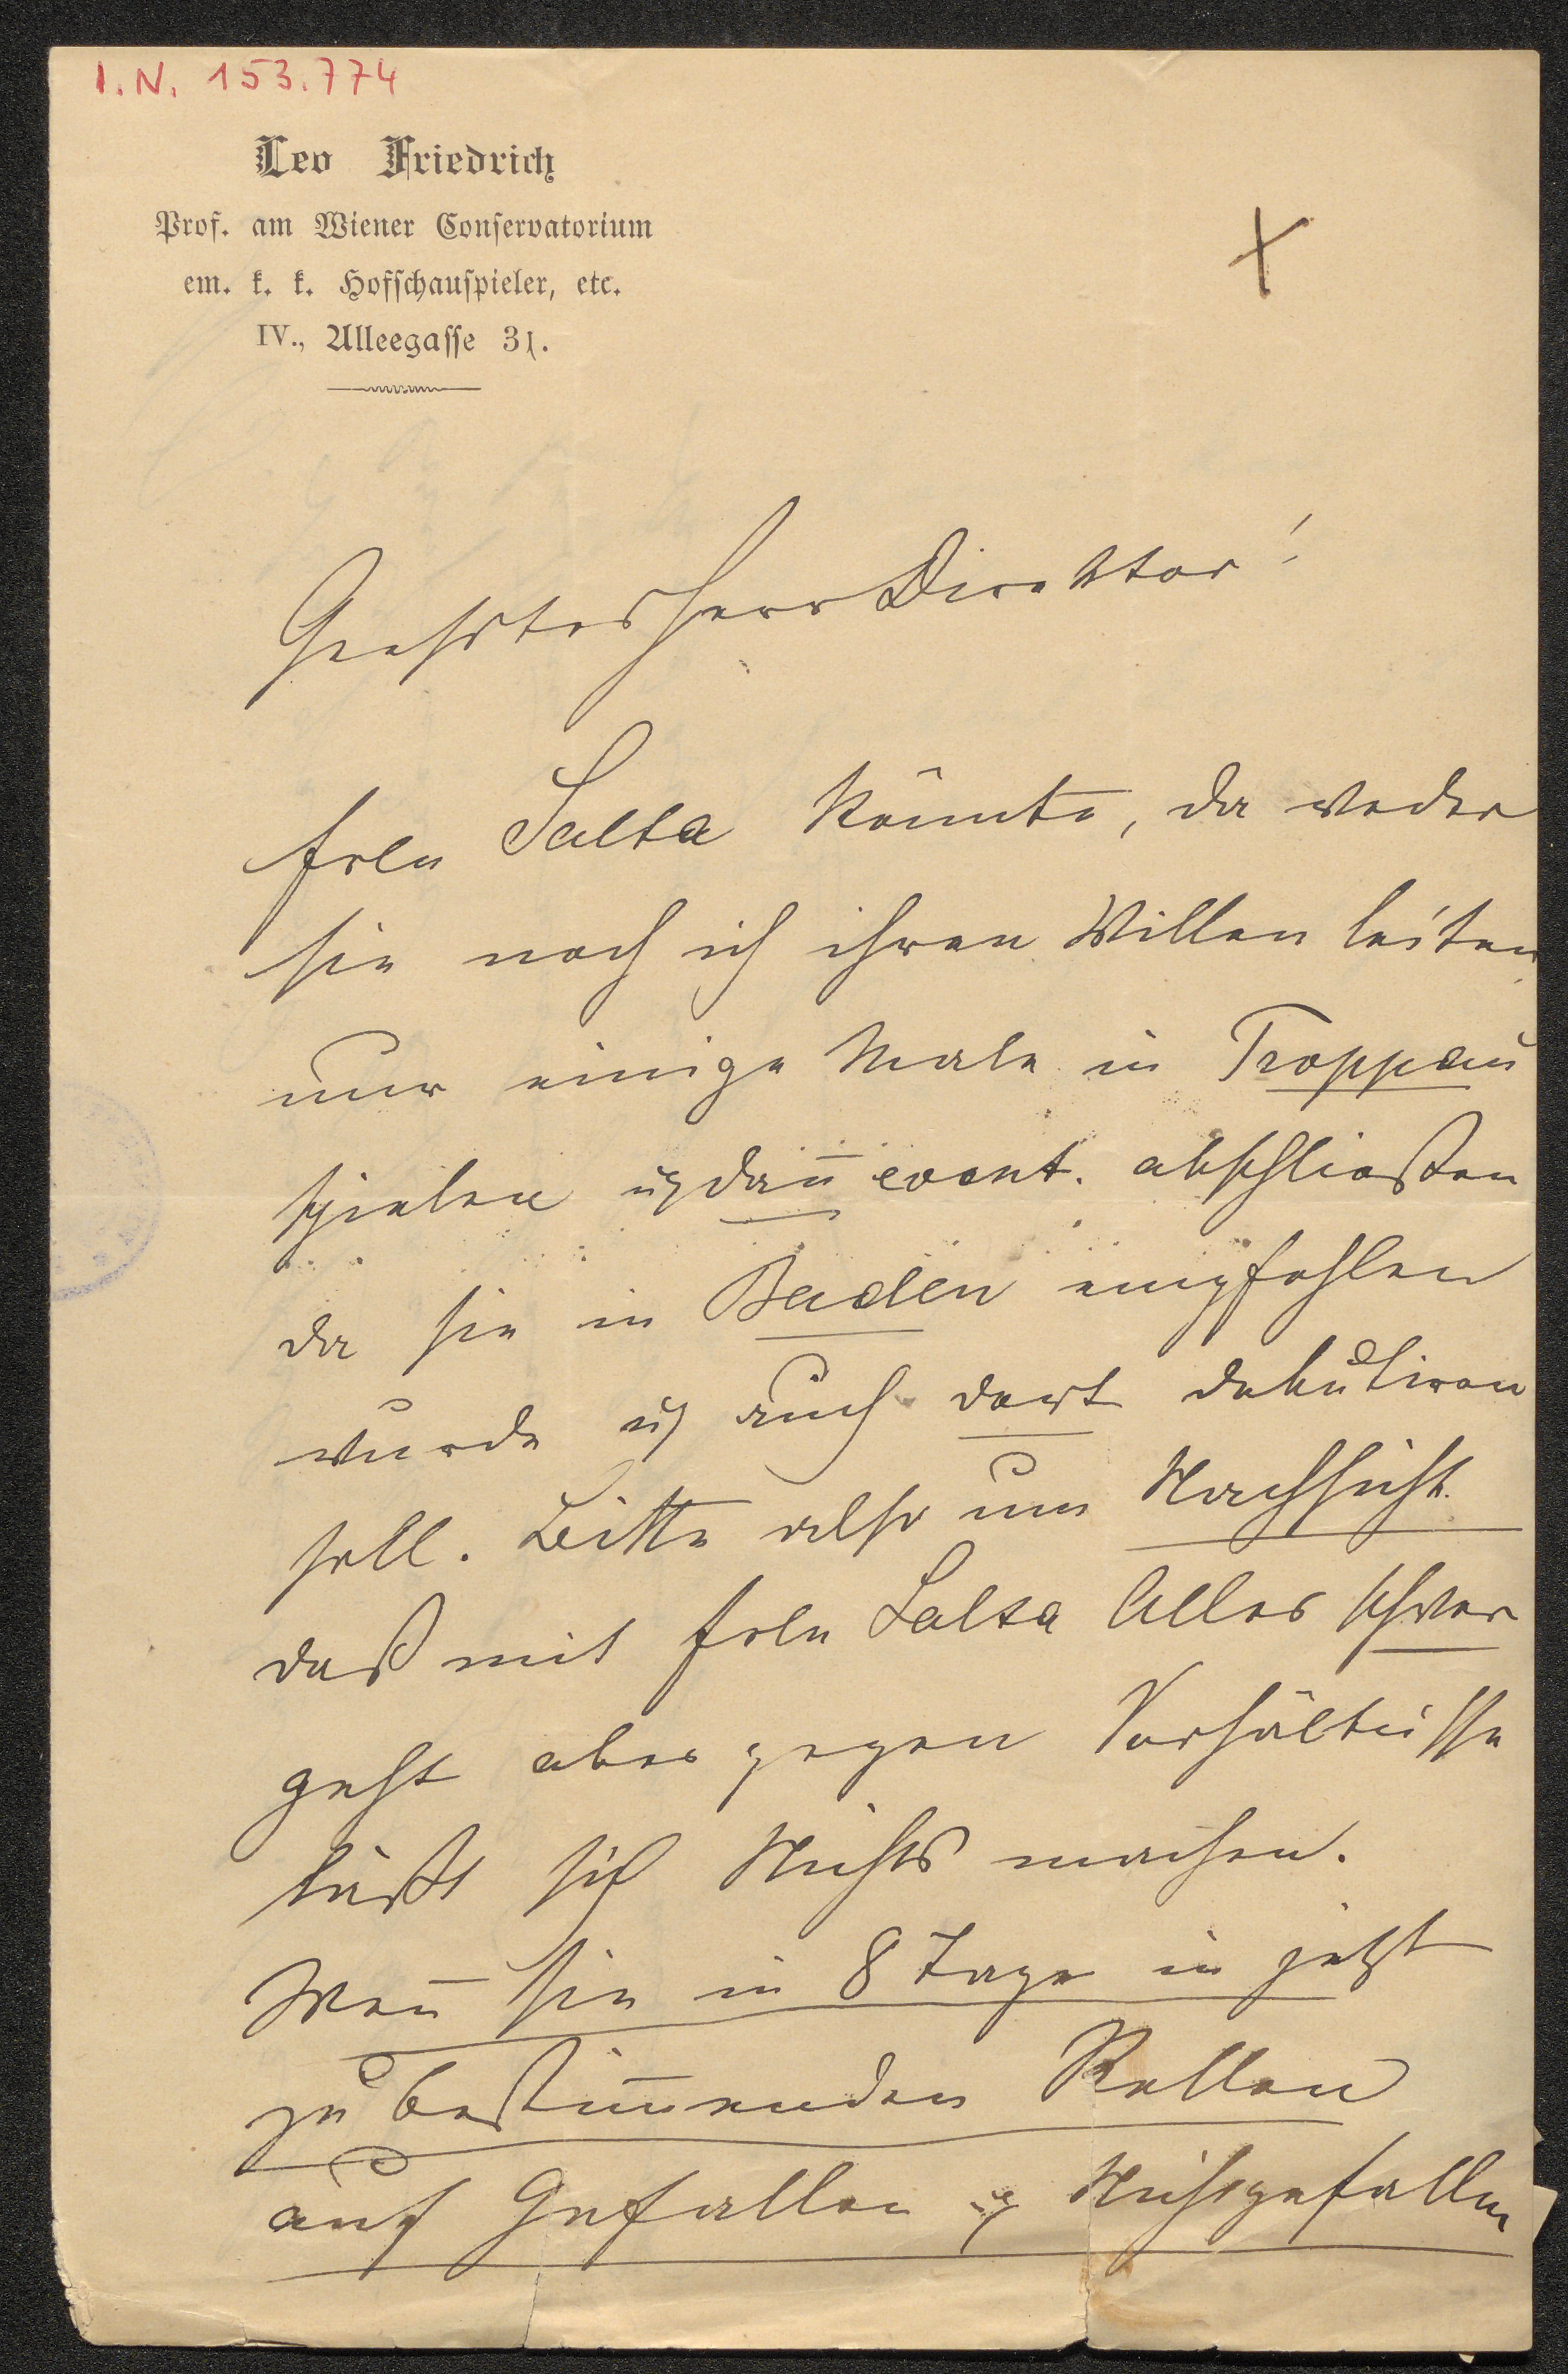 I.N. 153.774
Leo Friedrich
Prof. am Wiener Conservatorium
em. k. k. Hofschauspieler, etc.
IV., Alleegasse 31.
Geehrter Herr Direktor!
Frln Salta könnte, da weder
sie noch ich ihren Willen leiten
nur einige Male in Troppau
spielen u. dan̄ event. abschließen
da sie in Baden empfohlen
wurde u. auch dort debutiren
soll. Bitte also um Nachsicht
daß mit Frln Salta Alles schwer
geht aber gegen Verhältnisse
läßt sich Nichts machen.
Wen̄ sie in 8 Tage in jetzt
zu bestim̄enden Rollen
auf Gefallen u. Nichtgefallen